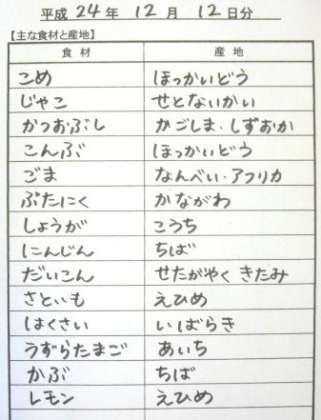 平成 24 年 12 月 12 日分
【主な食材と産地】
食材 産地
こめ ほっかいどう
じゃこ せとないかい
かつおぶし かごしま・しずおか
こんぶ ほっかいどう
ごま なんべい・アフリカ
ぶたにく かながわ
しょうが こうち
にんじん ちば
だいこん せたがやく きたみ
さといも えひめ
はくさい いばらき
うずらたまご あいち
かぶ ちば
レモン えひめ